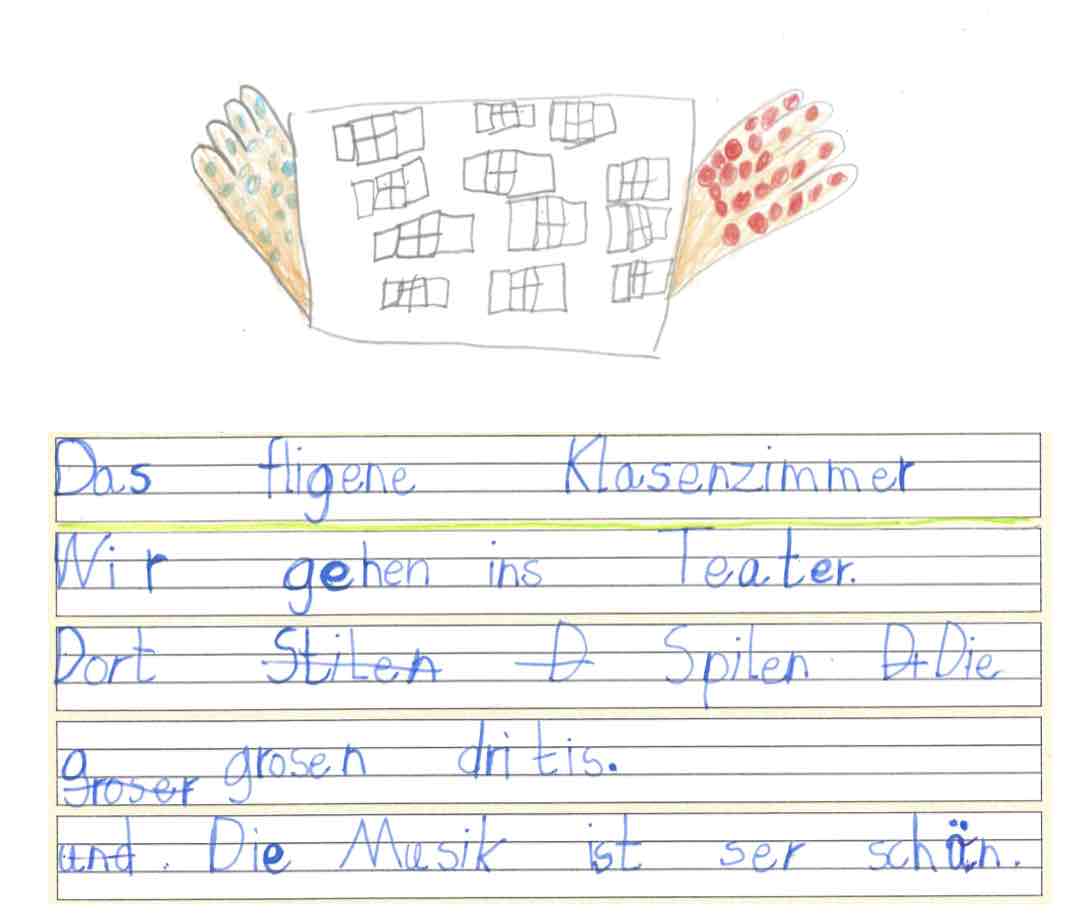 Das fligene Klasenzimmer
Wir gehen ins Teater.
Dort Stilen D Spilen Dt Die
groser grosen dritis.
und. Die Musik ist ser schän.